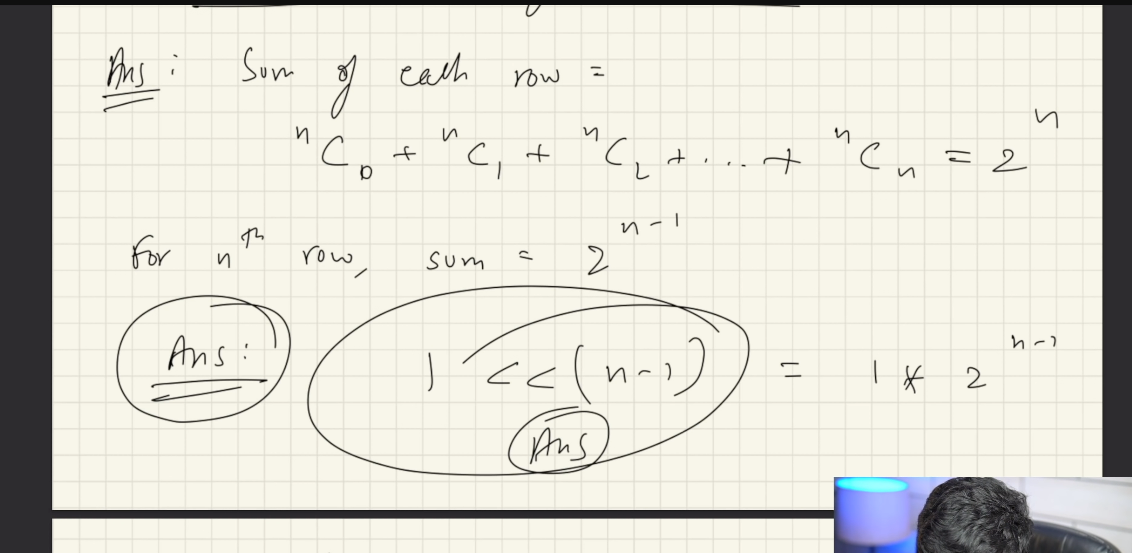 Ans : Sum of each row =
ⁿC₀ + ⁿC₁ + ⁿC₂ + .... + ⁿCₙ = 2ⁿ
For nᵗʰ row, sum = 2ⁿ⁻¹
Ans : 1 << (n-1) = 1 * 2ⁿ⁻¹
Ans